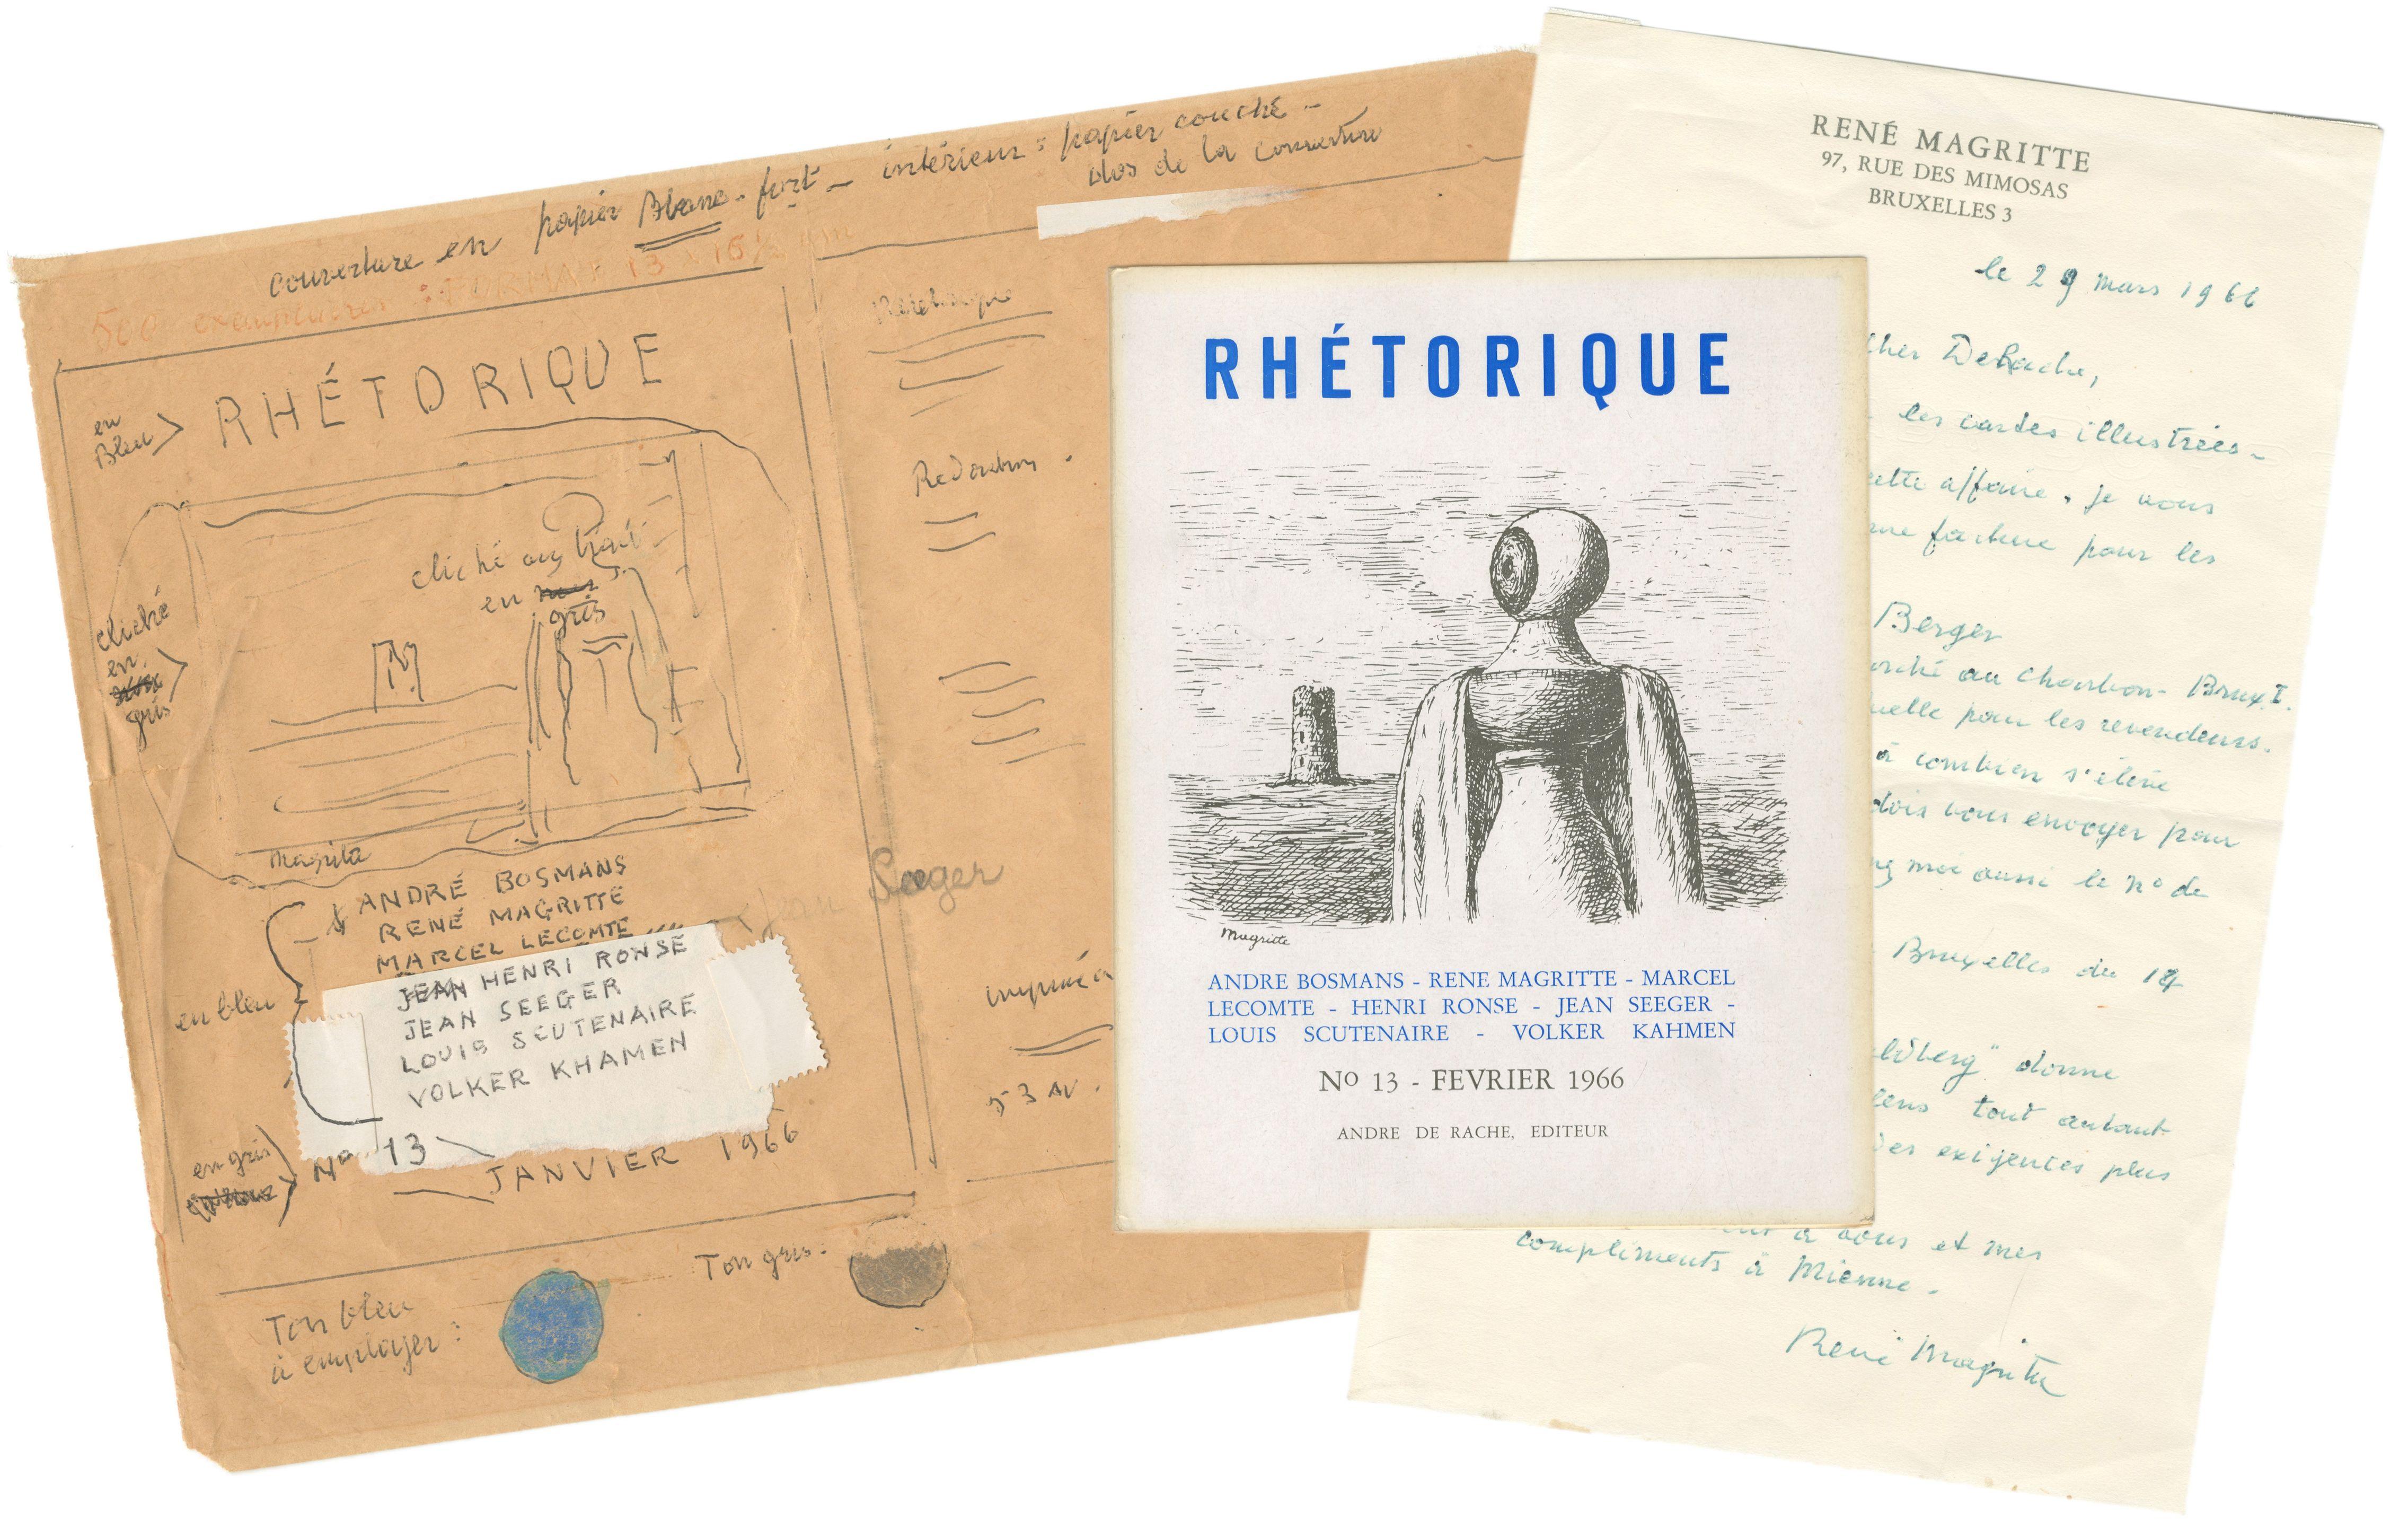 couverture en papier Blanc fort - intérieur : papier couché -
dos de la couverture
500 exemplaires : FORMAT 13 x 16½ cm
en
Bleu
RHÉTORIQUE
cliché au trait
en
gris
cliché
en
gris
Magritte
en bleu
ANDRÉ BOSMANS
RENÉ MAGRITTE
MARCEL LECOMTE
Jean Seeger
JEAN HENRI RONSE
JEAN SEEGER
LOUIS SCUTENAIRE
VOLKER KHAMEN
en gris
No 13
JANVIER 1966
Ton bleu
à employer :
Ton gris :
Rhétorique
Redaction
imprimé à
53 AV.
RHÉTORIQUE
Magritte
ANDRE BOSMANS - RENE MAGRITTE - MARCEL
LECOMTE - HENRI RONSE - JEAN SEEGER -
LOUIS SCUTENAIRE - VOLKER KAHMEN
No 13 - FEVRIER 1966
ANDRE DE RACHE, EDITEUR
RENÉ MAGRITTE
97, RUE DES MIMOSAS
BRUXELLES 3
le 29 mars 1966
cher De Rache,
les cartes illustrées -
cette affaire, je vous
une facture pour les
Berger
marché au charbon - Brux. I.
pour les revendeurs.
à combien s'élève
dois vous envoyer pour
moi aussi le no de
Bruxelles du 14
donne
tout autant
des exigences plus
à vous et mes
compliments à Mienne.
René Magritte